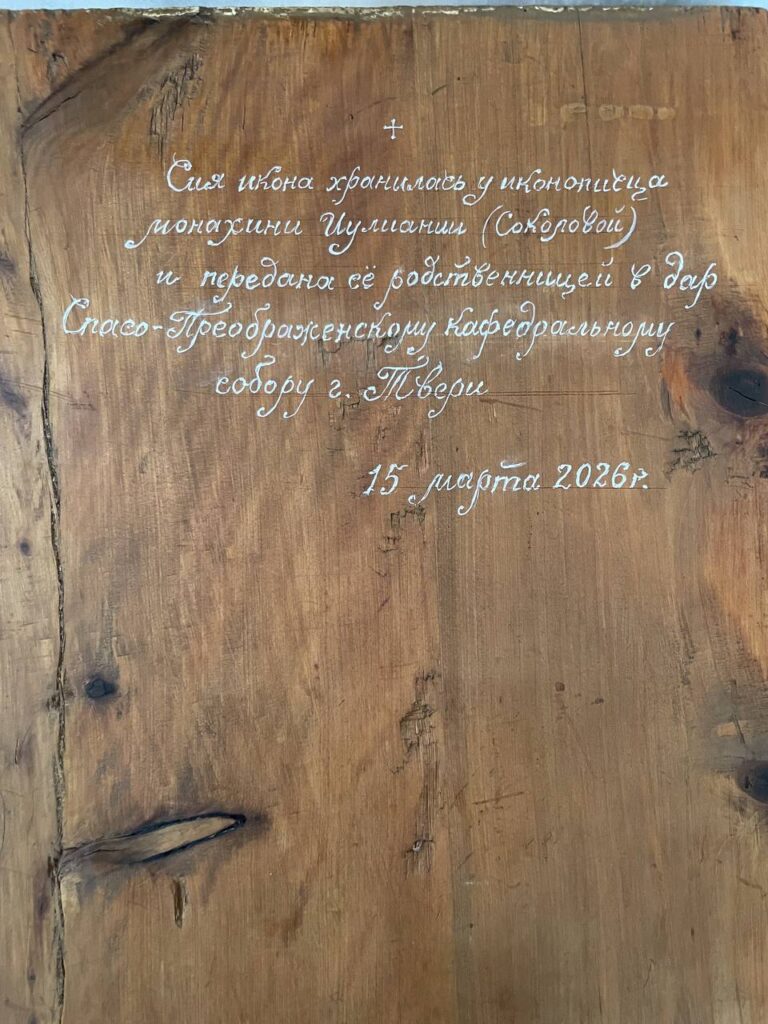 Сия икона хранилась у иконописца
монахини Иулиании (Соколовой)
и передана её родственницей в дар
Спасо-Преображенскому кафедральному
собору г. Твери
15 марта 2026г.